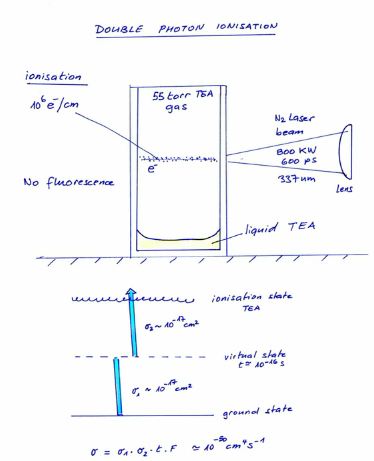 DOUBLE PHOTON IONISATION
ionisation
10⁶ e⁻/cm
55 torr TEA
gas
N2 Laser
beam
800 KW
600 ps
337 nm
Lens
e⁻
No fluorescence
liquid TEA
ionisation state
TEA
σ₂ ~ 10⁻¹⁷ cm²
virtual state
t ≈ 10⁻¹⁶ s
σ₁ ~ 10⁻¹⁷ cm²
ground state
σ = σ₁ · σ₂ · t · F ≈ 10⁻⁵⁰ cm⁴ s⁻¹